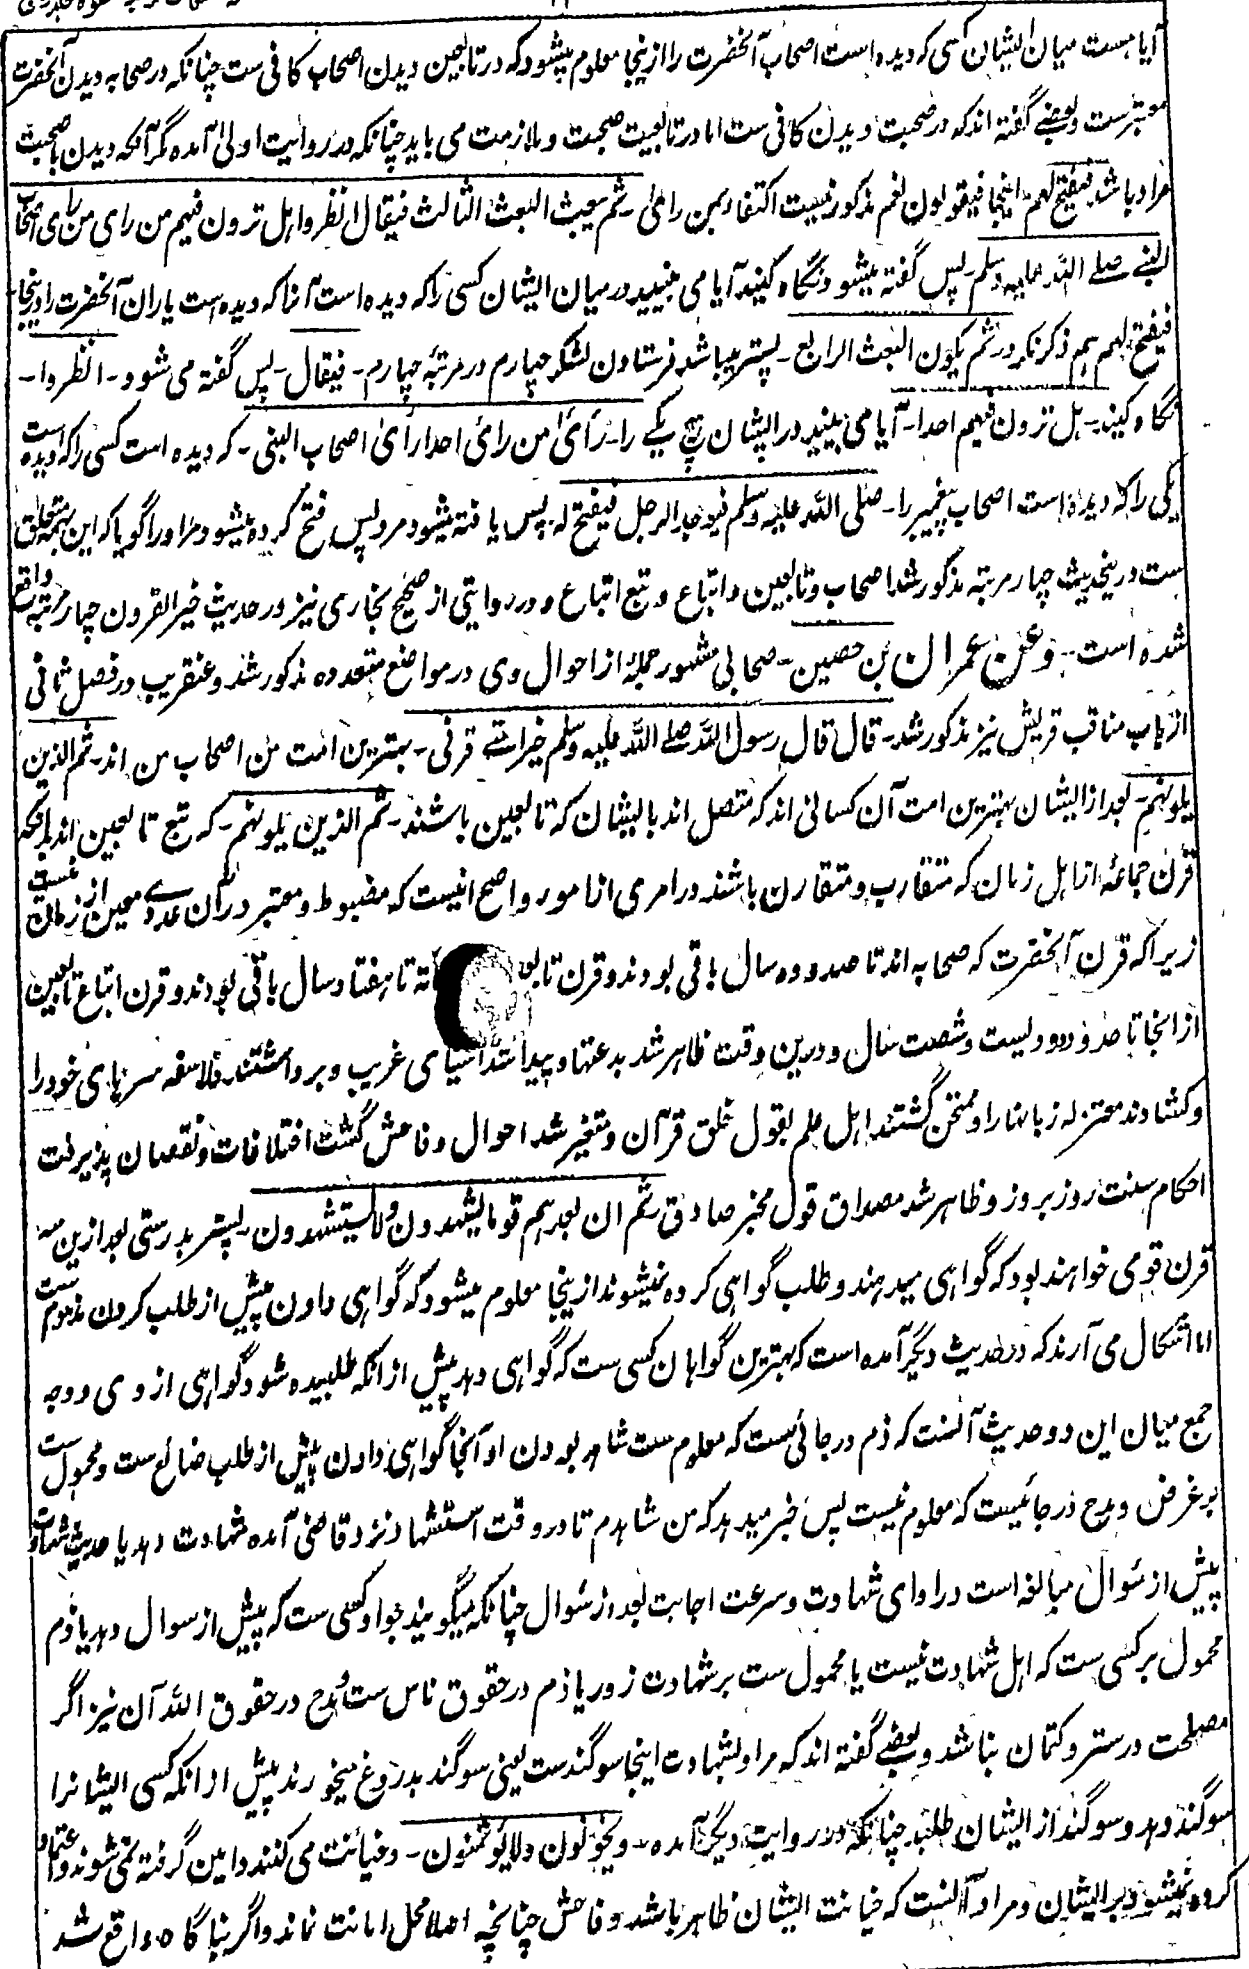 آیا هست میان ایشان کسی که دیده است اصحاب آنحضرت را ازینجا معلوم میشود که در تابعین دیدن اصحاب کافی ست چنانکه در صحابه دیدن آنحضرت
معتبرست و بعضے گفته اند که در صحبت دیدن کافی ست اما در تابعیت صحبت و ملازمت می باید چنانکه در روایت اولی آمده مگر آنکه دیدن با صحبت
مراد باشد فیفتح لهم اینجا فیقولون نعم مذکور نیست اکتفا بمن رای ثم یبعث البعث الثالث فیقال انظروا هل ترون فیهم من رای من رای اصحاب
النبے صلے اللہ علیه وسلم پس گفته میشود نگاه کنید آیا می بینید درمیان ایشان کسی را که دیده است آنرا که دیده است یاران آنحضرت را و اینجا
فیفتح لهم هم ذکر نکرد ثم یکون البعث الرابع - پستر میباشد فرستادن لشکر چهارم در مرتبۂ چهارم - فیقال - پس گفته می شود - انظروا -
نگاه کنید - هل ترون فیهم احدا - آیا می بینید در ایشان هیچ یکے را - رأی من رأی احدا رأی اصحاب النبی - که دیده است کسی را که دیده است
یکی را که دیده است اصحاب پیغمبر را - صلی اللہ علیه وسلم فیوجد الرجل فیفتح له پس یافته میشود مرد پس فتح کرده میشود مر او را گویا که این همه متعلق
ست درینحدیث چهار مرتبه مذکور شد اصحاب و تابعین و اتباع و تبع اتباع و در روایتی از صحیح بخاری نیز در حدیث خیر القرون چهار مرتبه واقع
شده است - وعن عمران بن حصین - صحابی مشهور جملۂ از احوال وی در مواضع متعدده مذکور شد و عنقریب در فصل ثانی
از باب مناقب قریش نیز مذکور شد - قال قال رسول اللہ صلے اللہ علیه وسلم خیر امتے قرنی - بهترین امت من اصحاب من اند - ثم الذین
یلونهم - بعد از ایشان بهترین امت آن کسانی اند که متصل اند بایشان که تابعین باشند - ثم الذین یلونهم - که تبع تابعین اند بدانکه
قرن جماعۂ از اهل زمان که متقارب و متقارن باشند در امری از امور و اصح آنیست که مضبوط و معتبر در آن عددے معین از زمان نیست
زیراکه قرن آنحضرت که صحابه اند تا صد و ده سال باقی بودند و قرن تابعـ ـائة تا هفتاد سال باقی بودند و قرن اتباع تابعین
از انجا تا حدود دویست و شصت سال و درین وقت ظاهر شد بدعتها و پیدا شد اشیای غریب و برداشتند فلاسفه سرهای خود را
و کشادند معتزله زبانها را و ممتحن گشتند اهل علم بقول خلق قرآن و متغیر شد احوال و فاحش گشت اختلافات و نقصان پذیرفت
احکام سنت روز بروز و ظاهر شد مصداق قول مخبر صادق ثم ان بعدهم قوما یشهدون ولا یستشهدون - پستر بدرستی بعد ازین سه
قرن قومی خواهند بود که گواهی میدهند و طلب گواهی کرده نمیشوند ازینجا معلوم میشود که گواهی دادن پیش از طلب کردن مذموم ست
اما اشکال می آرند که در حدیث دیگر آمده است که بهترین گواهان کسی ست که گواهی دهد پیش از آنکه طلبیده شود گواهی از وی و وجه
جمع میان این دو حدیث آنست که ذم در جائی ست که معلوم ست شاهد بودن او آنجا گواهی دادن پیش از طلب ضائع ست و محمول ست
بر غرض و مدح در جائیست که معلوم نیست پس خبر میدهد که من شاهدم تا در وقت استشهاد نزد قاضی آمده شهادت دهد یا حدیث شهادت
پیش از سوال مبالغه است در ادای شهادت و سرعت اجابت بعد از سوال چنانکه میگویند جواد کسی ست که پیش از سوال دهد یا ذم
محمول بر کسی ست که اهل شهادت نیست یا محمول ست بر شهادت زور یا ذم در حقوق ناس ست و مدح در حقوق اللہ آن نیز اگر
مصلحت در ستر و کتمان نباشد و بعضے گفته اند که مراد بشهادت اینجا سوگندست یعنی سوگند بدروغ میخورند پیش از آنکه کسی ایشانرا
سوگند دهد و سوگند از ایشان طلبد چنانکه در روایت دیگر آمده - ویخونون ولا یؤتمنون - و خیانت می کنند و امین گرفته نمی شوند و اعتماد
کرده نمیشود بر ایشان و مراد آنست که خیانت ایشان ظاهر باشد و فاحش چنانچه اصلا محل امانت نماند و اگر بناگاه واقع شد